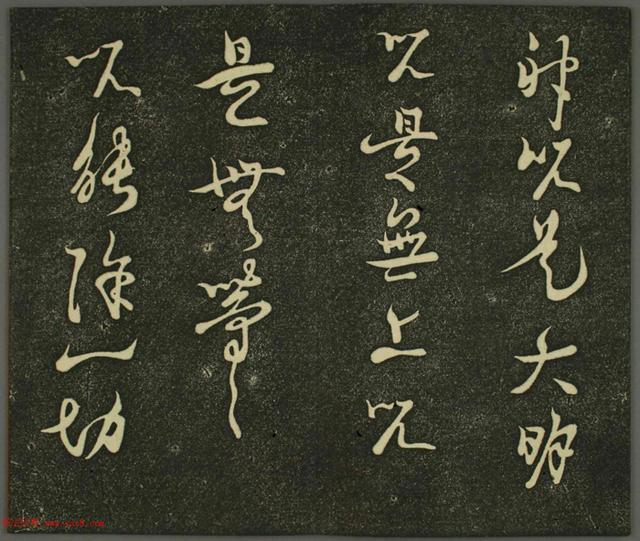 神咒是大明
咒是無上咒
是無等〻
咒能除一切
www.yac8.com